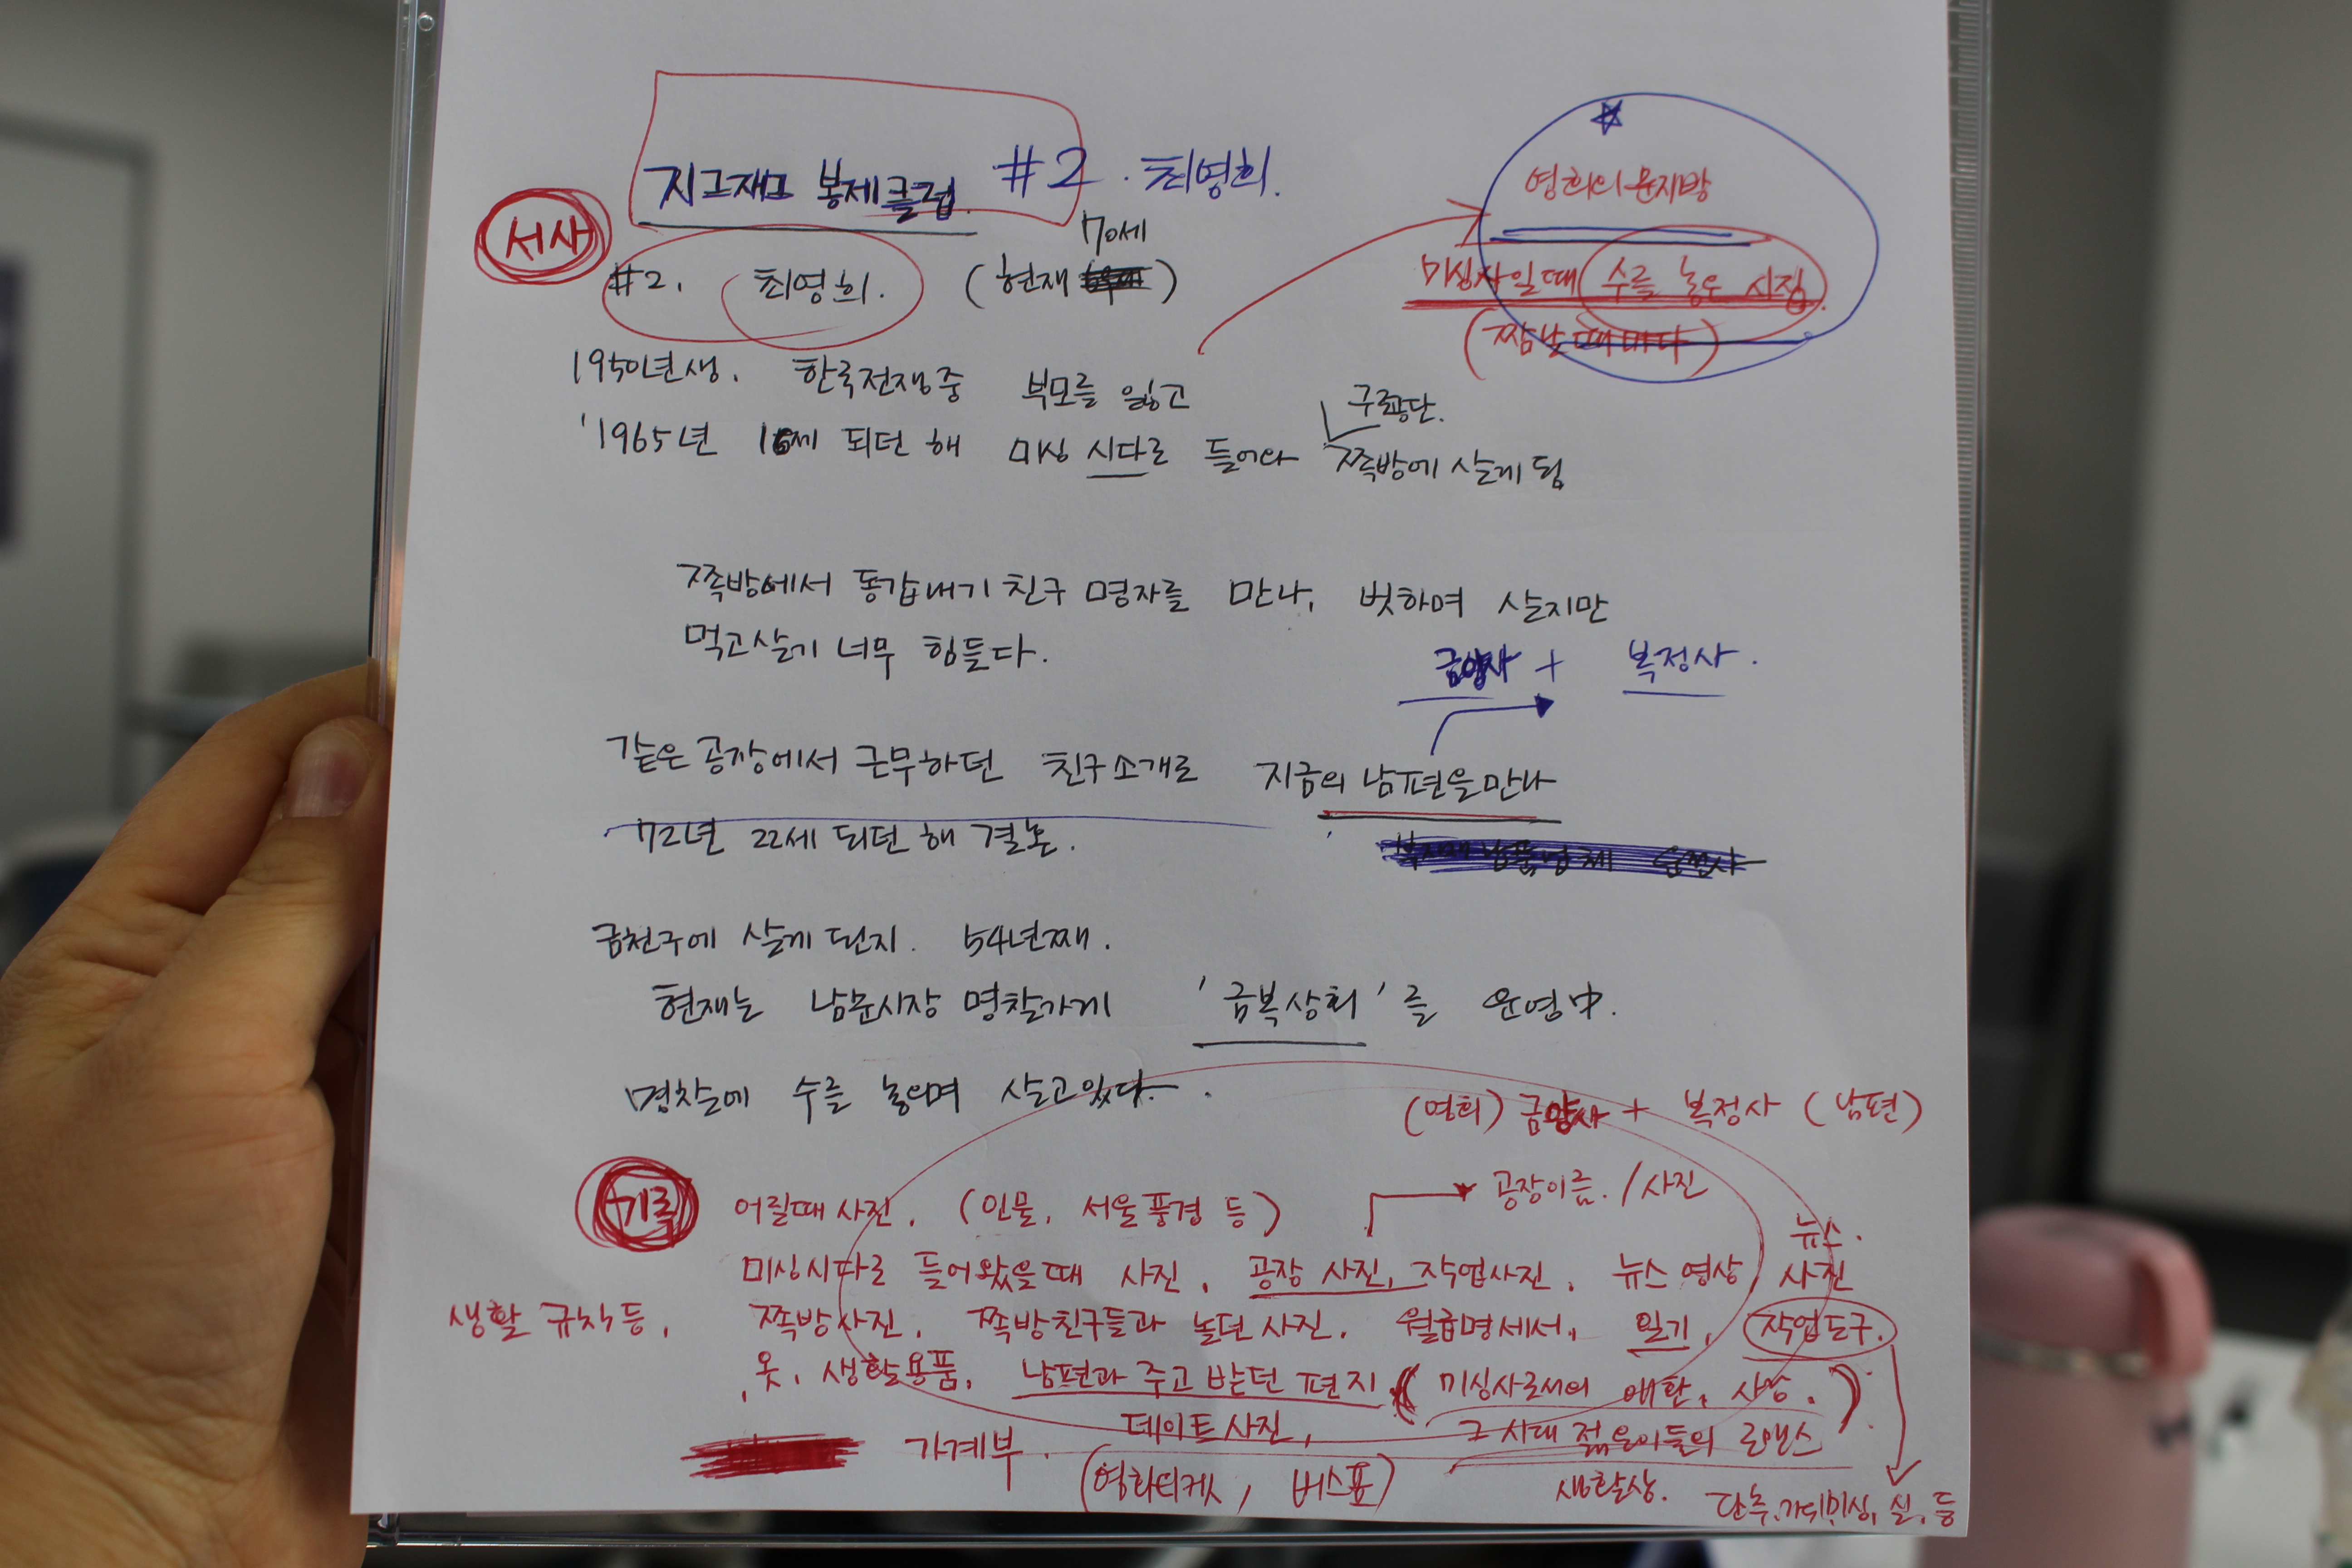 지그재그 봉제클럽 #2. 최영희.
서사
#2. 최영희. (현재 70세)
영희의 문지방
미싱사일때 수를 놓은 시집.
(짬날때마다)
1950년생. 한국전쟁중 부모를 잃고
1965년 16세 되던 해 미싱 시다로 들어와 쪽방에 살게 됨
구로공단.
쪽방에서 동갑내기 친구 명자를 만나, 벗하며 살지만
먹고살기 너무 힘들다.
금양사 + 복정사.
같은 공장에서 근무하던 친구소개로 지금의 남편을 만나
72년 22세 되던 해 결혼.
금천구에 살게 된지. 54년째.
현재는 남문시장 명찰가게 '금복상회'를 운영中.
명찰에 수를 놓으며 살고있다.
(영희) 금양사 + 복정사 (남편)
기록
어릴때 사진. (인물, 서울풍경 등)
공장이름. / 사진
미싱시다로 들어왔을때 사진. 공장 사진, 작업사진. 뉴스 영상, 뉴스. 사진
생활 규칙 등, 쪽방사진. 쪽방친구들과 놀던 사진. 월급명세서, 일기, 작업도구.
옷, 생활용품, 남편과 주고 받던 편지 (미싱사로서의 애환, 사랑.)
데이트사진, 그 시대 젊은이들의 로맨스
가계부. (영화티켓, 버스표) 생활상.
단추, 가위, 미싱, 실, 등